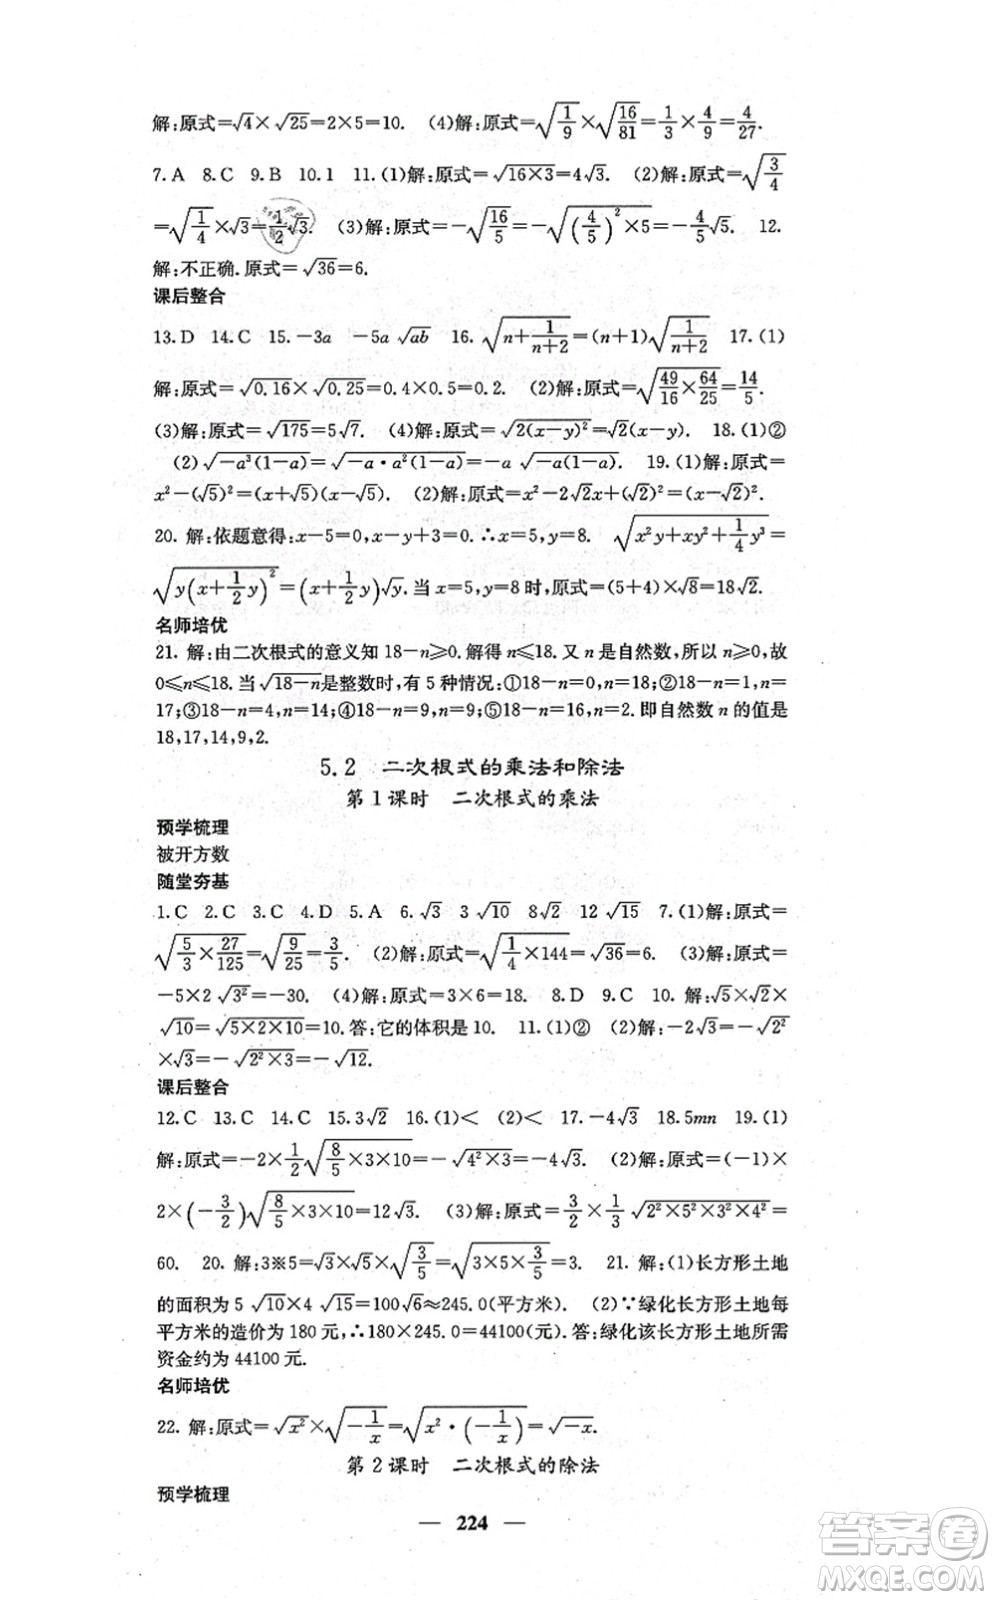 解:原式=√4×√25=2×5=10. (4)解:原式=√(1/9)×√(16/81)=1/3×4/9=4/27.
7.A 8.C 9.B 10.1 11.(1)解:原式=√(16×3)=4√3. (2)解:原式=√(3/4)
=√(1/4)×√3=1/2√3. (3)解:原式=-√(16/5)=-√((4/5)²×5)=-4/5√5. 12.
解:不正确.原式=√36=6.
课后整合
13.D 14.C 15.-3a -5a√ab 16.√(n+1/(n+2))=(n+1)√(1/(n+2)) 17.(1)
解:原式=√0.16×√0.25=0.4×0.5=0.2. (2)解:原式=√(49/16×64/25)=14/5.
(3)解:原式=√175=5√7. (4)解:原式=√(2(x-y)²)=√2(x-y). 18.(1)②
(2)√(-a³(1-a))=√(-a·a²(1-a))=-a√(-a(1-a)). 19.(1)解:原式=
x²-(√5)²=(x+√5)(x-√5). (2)解:原式=x²-2√2x+(√2)²=(x-√2)².
20. 解:依题意得:x-5=0,x-y+3=0.∴x=5,y=8. √(x²y+xy²+1/4y³)=
√(y(x+1/2y)²)=(x+1/2y)√y.当x=5,y=8时,原式=(5+4)×√8=18√2.
名师培优
21. 解:由二次根式的意义知18-n≥0.解得n≤18.又n是自然数,所以n≥0,故
0≤n≤18.当√(18-n)是整数时,有5种情况:①18-n=0,n=18;②18-n=1,n=
17;③18-n=4,n=14;④18-n=9,n=9;⑤18-n=16,n=2.即自然数n的值是
18,17,14,9,2.
5.2 二次根式的乘法和除法
第1课时 二次根式的乘法
预学梳理
被开方数
随堂夯基
1.C 2.C 3.C 4.D 5.A 6.√3 3√10 8√2 12√15 7.(1)解:原式=
√(5/3×27/125)=√(9/25)=3/5. (2)解:原式=√(1/4×144)=√36=6. (3)解:原式=
-5×2√3²=-30. (4)解:原式=3×6=18. 8.D 9.C 10. 解:√5×√2×
√10=√(5×2×10)=10.答:它的体积是10. 11.(1)② (2)解:-2√3=-√2²
×√3=-√(2²×3)=-√12.
课后整合
12.C 13.C 14.C 15.3√2 16.(1)< (2)< 17.-4√3 18.5mn 19.(1)
解:原式=-2×1/2√(8/5×3×10)=-√(4²×3)=-4√3. (2)解:原式=(-1)×
2×(-3/2)√(8/5×3×10)=12√3. (3)解:原式=3/2×1/3√(2²×5²×3²×4²)=
60. 20. 解:3※5=√3×√5×√(3/5)=√(3×5×3/5)=3. 21. 解:(1)长方形土地
的面积为5√10×4√15=100√6≈245.0(平方米). (2)∵绿化长方形土地每
平方米的造价为180元,∴180×245.0=44100(元).答:绿化该长方形土地所需
资金约为44100元.
名师培优
22. 解:原式=√x²×√(-1/x)=√(x²·(-1/x))=√-x.
第2课时 二次根式的除法
预学梳理
— 224 —
答案圈
MXQE.COM